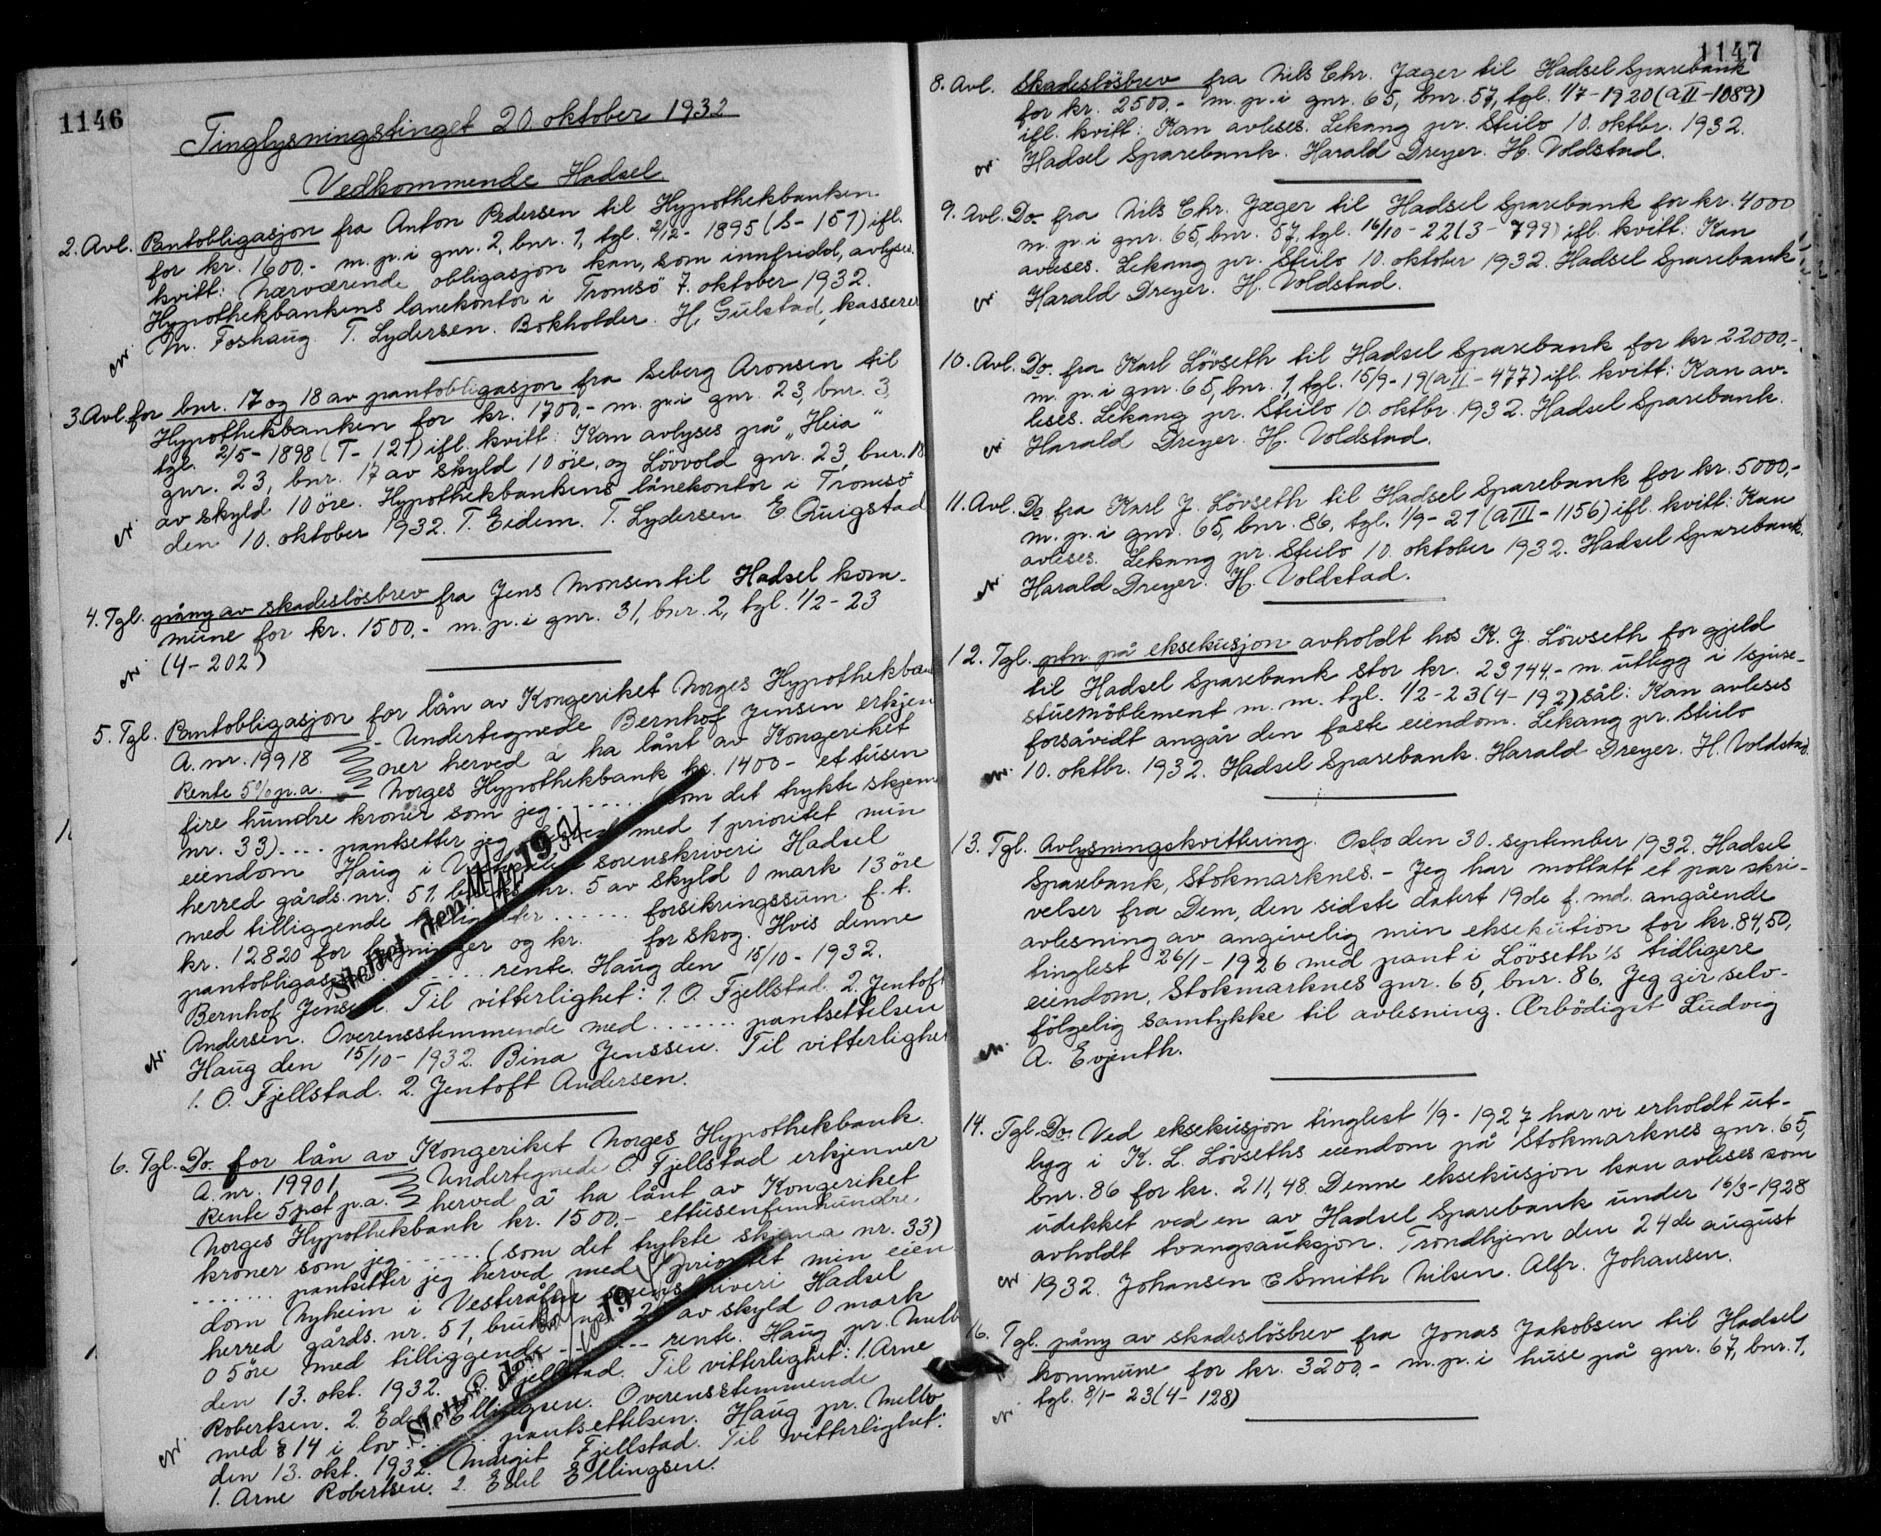 1146
Tinglysningstinget 20 oktober 1932
Vedkommende Hadsel.
2. Avl. Pantobligasjon fra Anton Pedersen til Hypothekbanken
for kr. 1600,- m. p. i gnr. 2, bnr. 1, tgl. 2/12 - 1895 (S - 151) ifl.
kvitt: Nærværende obligasjon kan, som innfridd, avlyses.
Hypothekbankens lånekontor i Tromsö 7. oktober 1932.
M. Foshaug T. Lydersen. Bokholder. H. Gulstad, kasserer
3 Avl. for bnr. 17 og 18 av pantobligasjon fra Seberg Aronsen til
Hypothekbanken for kr. 1700,- m. p. i gnr. 23, bnr. 3,
tgl. 2/5 - 1898 (T - 121) ifl. kvitt: Kan avlyses på "Heia"
gnr. 23, bnr. 17 av skyld 10 öre, og Lövvold gnr. 23, bnr. 18
av skyld 10 öre. Hypothekbankens lånekontor i Tromsö
den 10. oktober 1932. T. Eidem. T. Lydersen E. Quigstad
4. Tgl. påny av skadeslösbrev fra Jens Monsen til Hadsel kom-
mune for kr. 1500,- m. p. i gnr. 31, bnr. 2, tgl. 1/2 - 23
(4 - 202)
5. Tgl. Pantobligasjon for lån av Kongeriket Norges Hypothekbank
A. nr. 19918 - Undertegnede Bernhof Jensen erkjen
Rente 5% p. a. ner herved å ha lånt av Kongeriket
Norges Hypothekbank kr. 1400 - ettusen
fire hundre kroner som jeg ....... (som det trykte skjema
nr. 33) .... pantsetter jeg herved med 1 prioritet min
eiendom Haug i Vesterålen sorenskriveri Hadsel
herred gårds. nr. 51, bruks nr. 5 av skyld 0 mark 13 öre
med tilliggende herligheter ...... forsikringssum f. t.
kr. 12820 for bygninger og kr. for skog. Hvis denne
pantobligasjon ...... rente. Haug den 15/10 - 1932.
Bernhof Jensen. Til vitterlighet: 1. O. Fjellstad. 2. Jentoft
Andersen. Overensstemmende med ....... pantsettelsen
Haug den 15/10 - 1932. Bina Jenssen. Til vitterlighet
1. O. Fjellstad. 2. Jentoft Andersen.
Slettet den 19
6. Tgl. Do. for lån av Kongeriket Norges Hypothekbank.
A. nr. 19901. Undertegnede O. Fjellstad erkjenner
Rente 5 pct p. a. herved å ha lånt av Kongeriket
Norges Hypothekbank kr. 1500,- ettusenfemhundre
kroner som jeg ...... (som det trykte skjema nr. 33)
....... pantsetter jeg herved med 1 prioritet min eien
dom Nyheim i Vesterålen sorenskriveri Hadsel
herred gårds. nr. 51, bruks nr. av skyld 0 mark
05 öre med tilliggende ....... rente. Haug pr. Melbo
den 13. okt. 1932. O. Fjellstad. Til vitterlighet: 1. Arne
Robertsen. 2. Edel Ellingsen. Overensstemmende
med § 14 i lov ...... pantsettelsen. Haug pr. Melbo
den 13. okt. 1932. Margit Fjellstad. Til vitterlighet:
1. Arne Robertsen. 2. Edel Ellingsen.
Slettet den 19
1147
8. Avl. Skadeslösbrev fra Nils Chr. Jæger til Hadsel Sparebank
for kr. 2500.- m. p. i gnr. 65, bnr. 57, tgl. 1/7 - 1920 (a II - 1089)
ifl. kvitt: Kan avleses. Lekang pr. Steilo 10. oktbr. 1932.
Hadsel Sparebank. Harald Dreyer. H. Voldstad.
9. Avl. Do. fra Nils Chr. Jæger til Hadsel Sparebank for kr. 4000
m. p. i gnr. 65, bnr. 57, tgl. 16/10 - 22 (3 - 799) ifl. kvitt: Kan
avleses. Lekang pr. Steilo 10. oktober 1932. Hadsel Sparebank
Harald Dreyer. H. Voldstad.
10. Avl. Do. fra Karl Lövseth til Hadsel Sparebank for kr 22000.-
m. p. i gnr. 65, bnr. 1, tgl. 15/9 - 19 (a II - 477) ifl. kvitt: Kan av-
leses. Lekang pr. Steilo 10. oktbr. 1932. Hadsel Sparebank.
Harald Dreyer. H. Voldstad.
11. Avl. Do fra Karl J. Lövseth til Hadsel Sparebank for kr. 5000,-
m. p. i gnr. 65, bnr. 86, tgl. 1/9 - 21 (a III - 1156) ifl. kvitt: Kan
avleses. Lekang pr. Steilo 10. oktober 1932. Hadsel Sparebank.
Harald Dreyer. H. Voldstad.
12. Tgl. ptn. på eksekusjon avholdt hos K. J. Lövseth for gjeld
til Hadsel Sparebank stor kr. 23144,- m. utlegg i 1 spise-
stuemöblement m. m. tgl. 1/2 - 23 (4 - 192) sål: Kan avleses
forsåvidt angår den faste eiendom. Lekang pr. Steilo
10. oktbr. 1932. Hadsel Sparebank. Harald Dreyer. H. Voldstad.
13. Tgl. Avlysningskvittering. Oslo den 30. september 1932. Hadsel
Sparebank, Stokmarknes. - Jeg har mottatt et par skri-
velser fra Dem, den sidste datert 19de f. md. angående
avlesning av angivelig min eksekution for kr. 84,50,
tinglest 26/1 - 1926 med pant i Lövseth's tidligere
eiendom, Stokmarknes gnr. 65, bnr. 86. Jeg gir selv-
fölgelig samtykke til avlesning. Ærbödigst Ludvig
A. Evjenth.
14. Tgl. Do. Ved eksekusjon tinglest 1/9 - 1927 har vi erholdt ut-
legg i K. L. Lövseths eiendom på Stokmarknes gnr. 65,
bnr. 86 for kr. 211,48. Denne eksekusjon kan avleses som
udekket ved en av Hadsel Sparebank under 16/3 - 1928
avholdt tvangsauksjon. Trondhjem den 24de august
1932. Johansen & Smith Nilsen. Alfr. Johansen.
16. Tgl. påny av skadeslösbrev fra Jonas Jakobsen til Hadsel
kommune for kr. 3200,- m. p. i huse på gnr. 67, bnr. 1,
tgl. 8/1 - 23 (4 - 128)